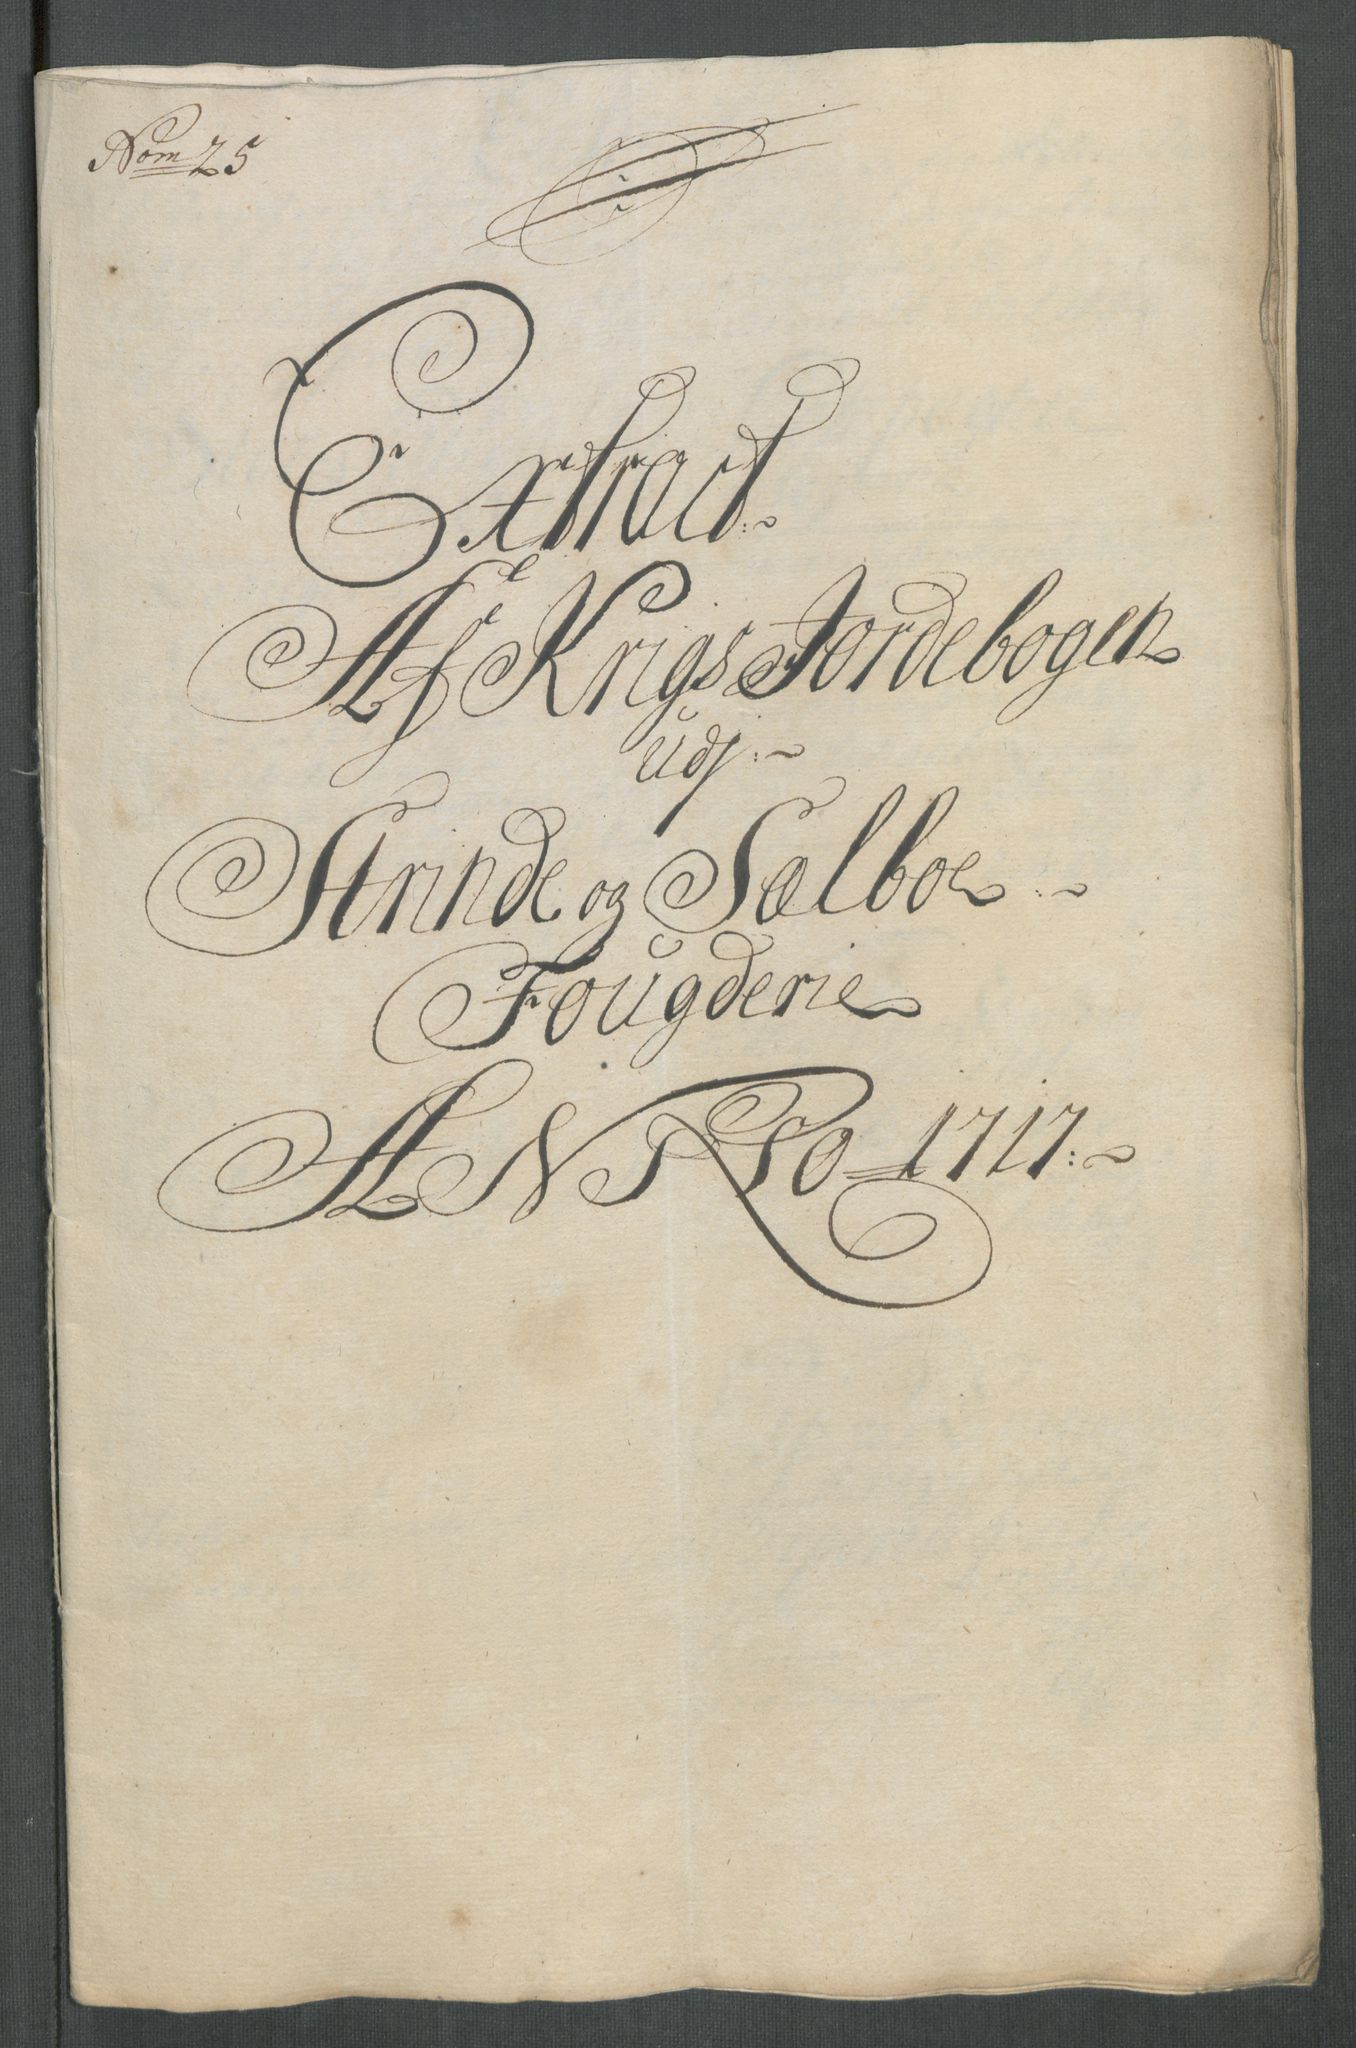 Nom 25
Extract:~
Af Krigs Jordebogen
udj:~
Strinde og Sælboe:~
Fougderie
ANNO 1717:~